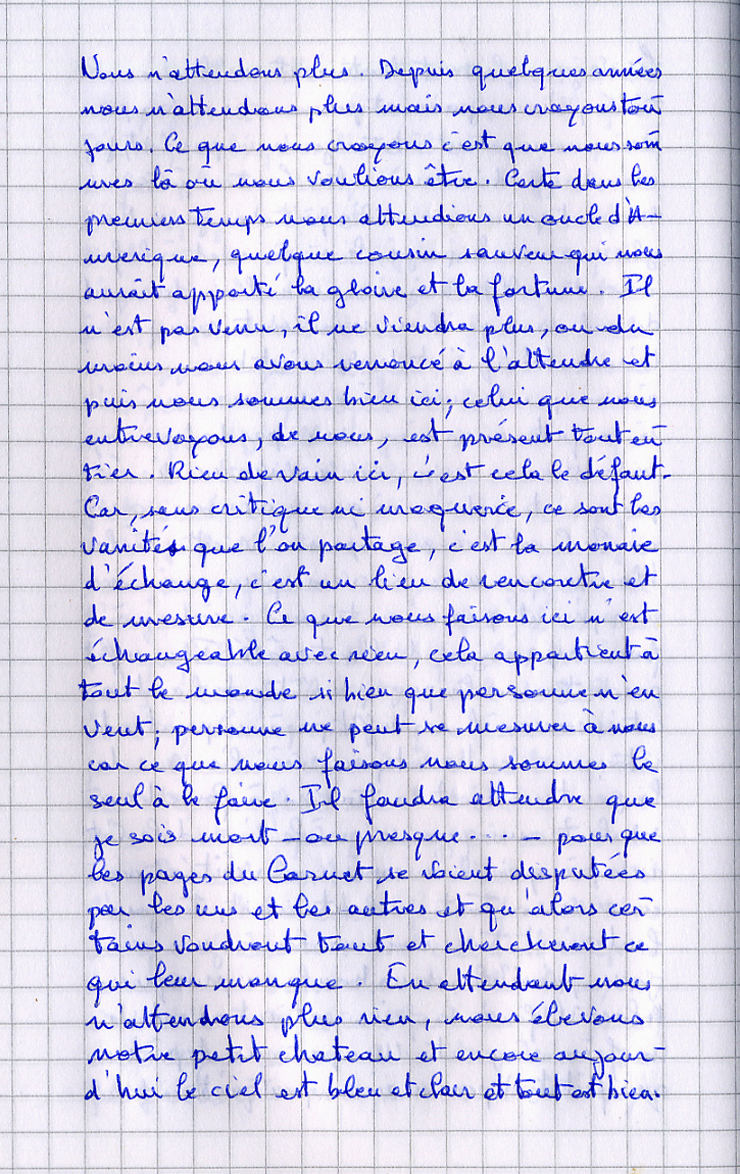 Nous n'attendons plus. Depuis quelques années
nous n'attendons plus mais nous croyons tou
jours. Ce que nous croyons c'est que nous som
mes là où nous voulions être. Certe dans les
premiers temps nous attendions un oncle d'A-
merique, quelque cousin sauveur qui nous
aurait apporté la gloire et la fortune. Il
n'est pas venu, il ne viendra plus, ou du
moins nous avons renoncé à l'attendre et
puis nous sommes bien ici; celui que nous
entrevoyons, de nous, est présent tout en
tier. Rien de vain ici, c'est cela le défaut.
Car, sans critique ni moquerie, ce sont les
vanités que l'on partage, c'est la monaie
d'échange, c'est un lieu de rencontre et
de mesure. Ce que nous faisons ici n'est
échangeable avec rien, cela appartient à
tout le monde si bien que personne n'en
veut; personne ne peut se mesurer à nous
car ce que nous faisons nous sommes le
seul à le faire. Il faudra attendre que
je sois mort - ou presque... - pour que
les pages du Carnet se voient disputées
par les uns et les autres et qu'alors cer
tains voudront tout et chercheront ce
qui leur manque. En attendant nous
n'attendons plus rien, nous élevons
notre petit chateau et encore aujour-
d'hui le ciel est bleu et clair et tout est bien.